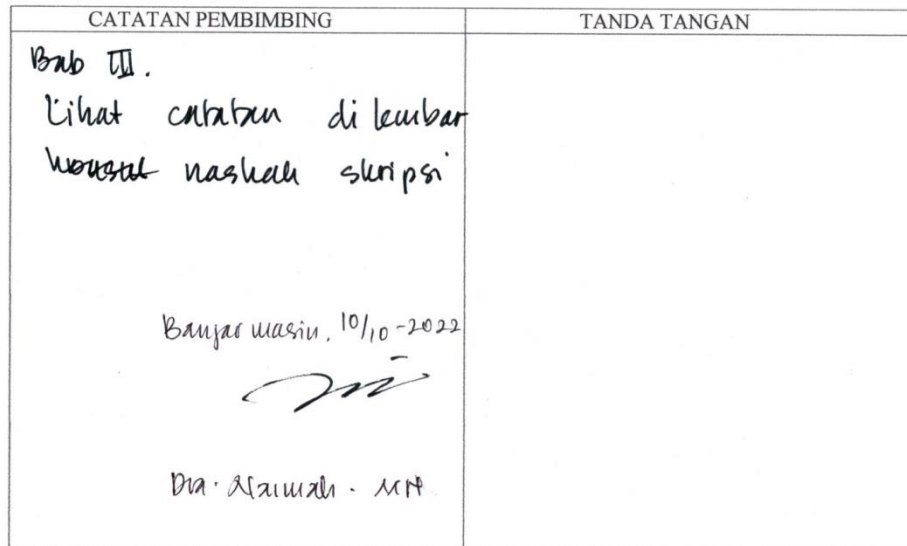 CATATAN PEMBIMBING
TANDA TANGAN
Bab III.
Lihat catatan di lembar
naskah skripsi
Banjarmasin, 10/10-2022
Dra. Naimah. MH